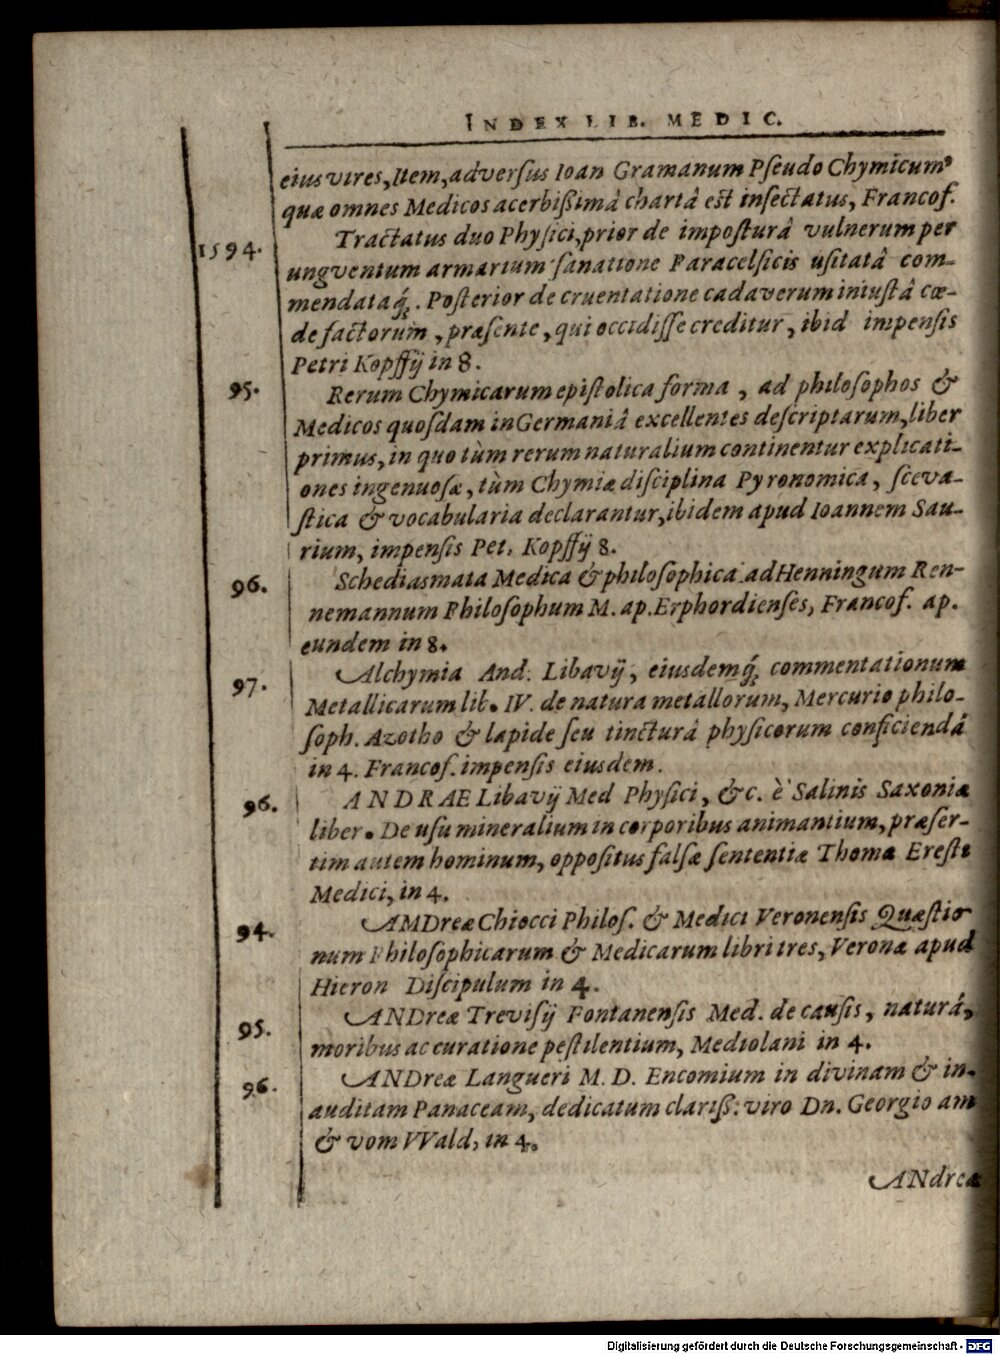 INDEX LIB. MEDIC.
eius vires, Item, adversus Ioan Gramanum Pseudo Chymicum
quæ omnes Medicos acerbißimâ chartâ est insectatus, Francof.
1594. Tractatus duo Physici, prior de imposturâ vulnerum per
ungventum armarium sanatione Paracelsicis usitatâ com-
mendataq́; . Posterior de cruentatione cadaverum iniustâ cæ-
de factorum, præsente, qui occidisse creditur, ibid impensis
Petri Kopffij in 8.
95. Rerum Chymicarum epistolica forma, ad philosophos &
Medicos quosdam in Germaniâ excellentes descriptarum, liber
primus, in quo tùm rerum naturalium continentur explicati-
ones ingenuosæ, tùm Chymiæ disciplina Pyronomica, sceva-
stica & vocabularia declarantur, ibidem apud Ioannem Sau-
rium, impensis Pet. Kopffij 8.
96. Schediasmata Medica & philosophica ad Henningum Ren-
nemannum Philosophum M. ap. Erphordienses, Francof. ap.
eundem in 8.
97. Alchymia And. Libavij, eiusdemq́; commentationum
Metallicarum lib. IV. de natura metallorum, Mercurio philo-
soph. Azotho & lapide seu tincturâ physicorum conficiendâ
in 4. Francof. impensis eiusdem.
96. ANDRAE Libavij Med Physici, &c. è Salinis Saxoniæ
liber. De usu mineralium in corporibus animantium, præser-
tim autem hominum, oppositus falsæ sententiæ Thomæ Eresti
Medici, in 4.
94. AMDreæ Chiocci Philos. & Medici Veronensis Quæstio
num Philosophicarum & Medicarum libri tres, Veronæ apud
Hieron Discipulum in 4.
95. ANDreæ Trevisij Fontanensis Med. de causis, naturâ,
moribus ac curatione pestilentium, Mediolani in 4.
96. ANDreæ Langueri M. D. Encomium in divinam & in-
auditam Panaceam, dedicatum clariß: viro Dn. Georgio am
& vom VVald, in 4.
ANdreæ
Digitalisierung gefördert durch die Deutsche Forschungsgemeinschaft - DFG